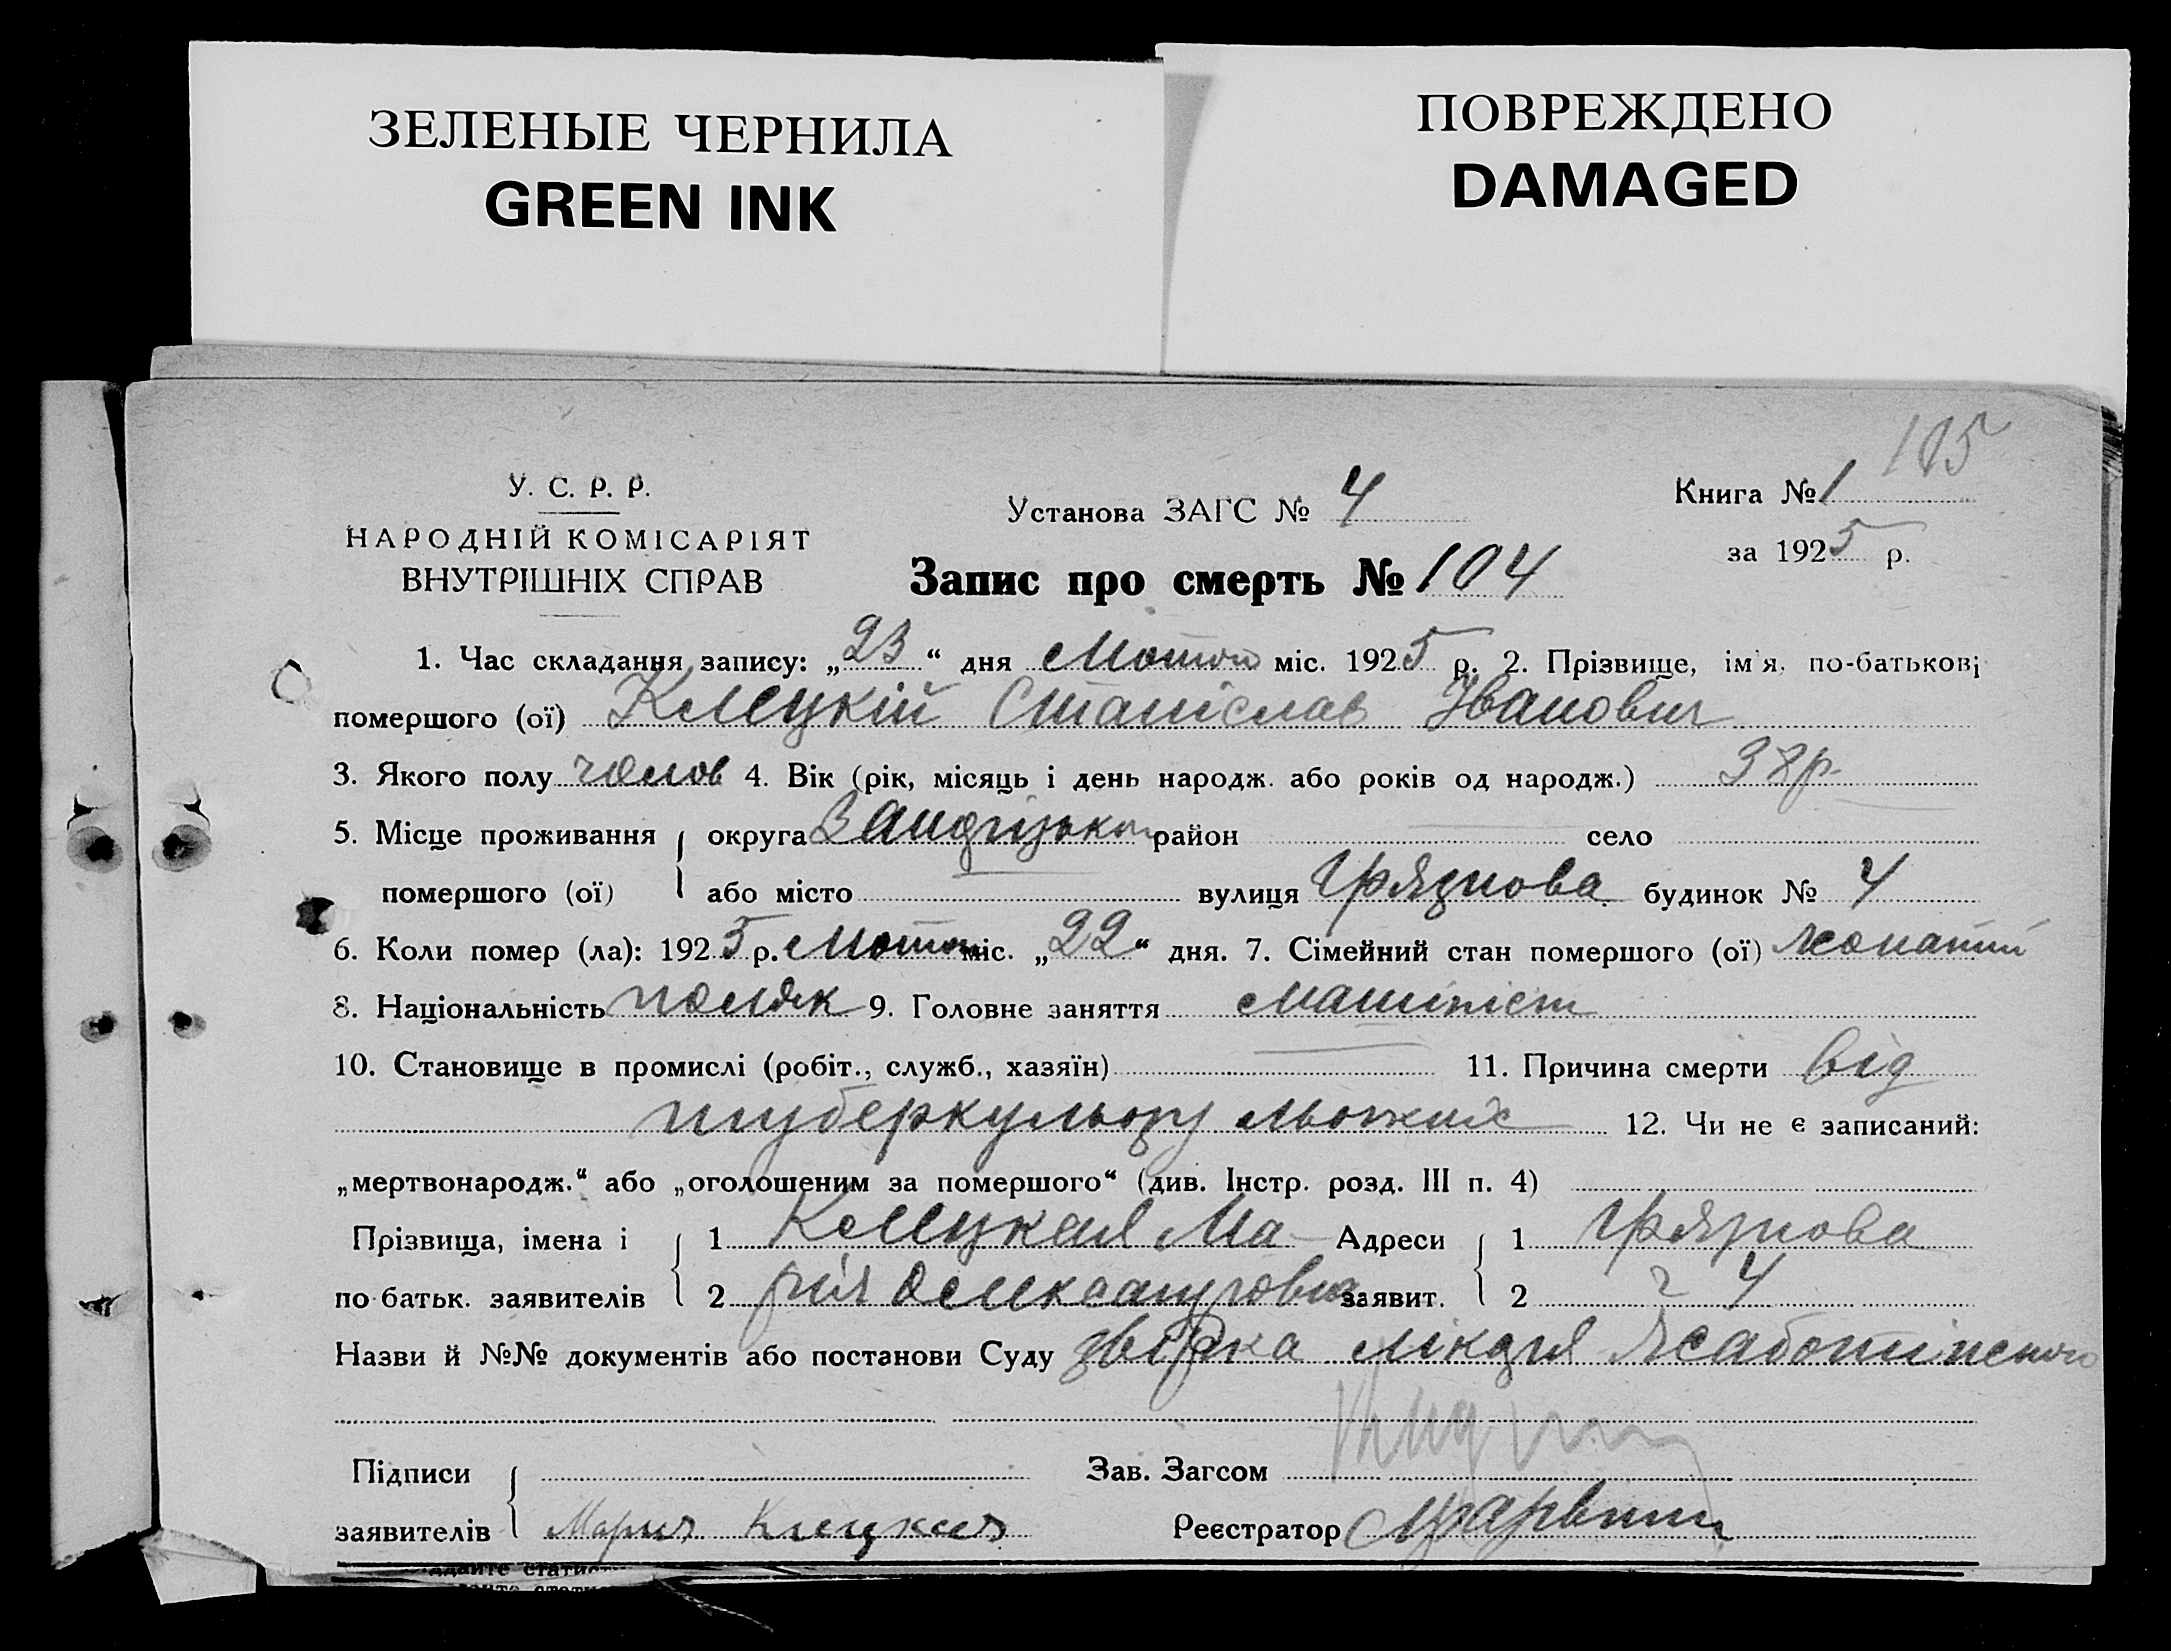 ЗЕЛЕНЫЕ ЧЕРНИЛА
GREEN INK
ПОВРЕЖДЕНО
DAMAGED
105
У. С. Р. Р.
НАРОДНІЙ КОМІСАРІЯТ
ВНУТРІШНІХ СПРАВ
Установа ЗАГС № 4
Книга № 1
за 1925 р.
Запис про смерть № 104
1. Час складання запису: „23“ дня Лютого міс. 1925 р. 2. Прізвище, ім'я, по-батькові
помершого (ої) Клецкій Станіслав Іванович
3. Якого полу чолов 4. Вік (рік, місяць і день народж. або років од народж.) 38р.
5. Місце проживання округа район село
помершого (ої) або місто вулиця Грязнова будинок № 4
6. Коли помер (ла): 1925 р. Лютого міс. „22“ дня. 7. Сімейний стан помершого (ої) жонатий
8. Національність поляк 9. Головне заняття машиніст
10. Становище в промислі (робіт., служб., хазяїн) 11. Причина смерти від
туберкульозу льогких 12. Чи не є записаний:
„мертвонародж.“ або „оголошеним за помершого“ (див. Інстр. розд. III п. 4)
Прізвища, імена і 1 Клецкая Ма- Адреси 1 Грязнова
по батьк. заявителів 2 рія Олександровна заявит. 2 4
Назви й №№ документів або постанови Суду лікаря Жаботінського
Підписи Зав. Загсом
заявителів Мария Клецкая Реєстратор